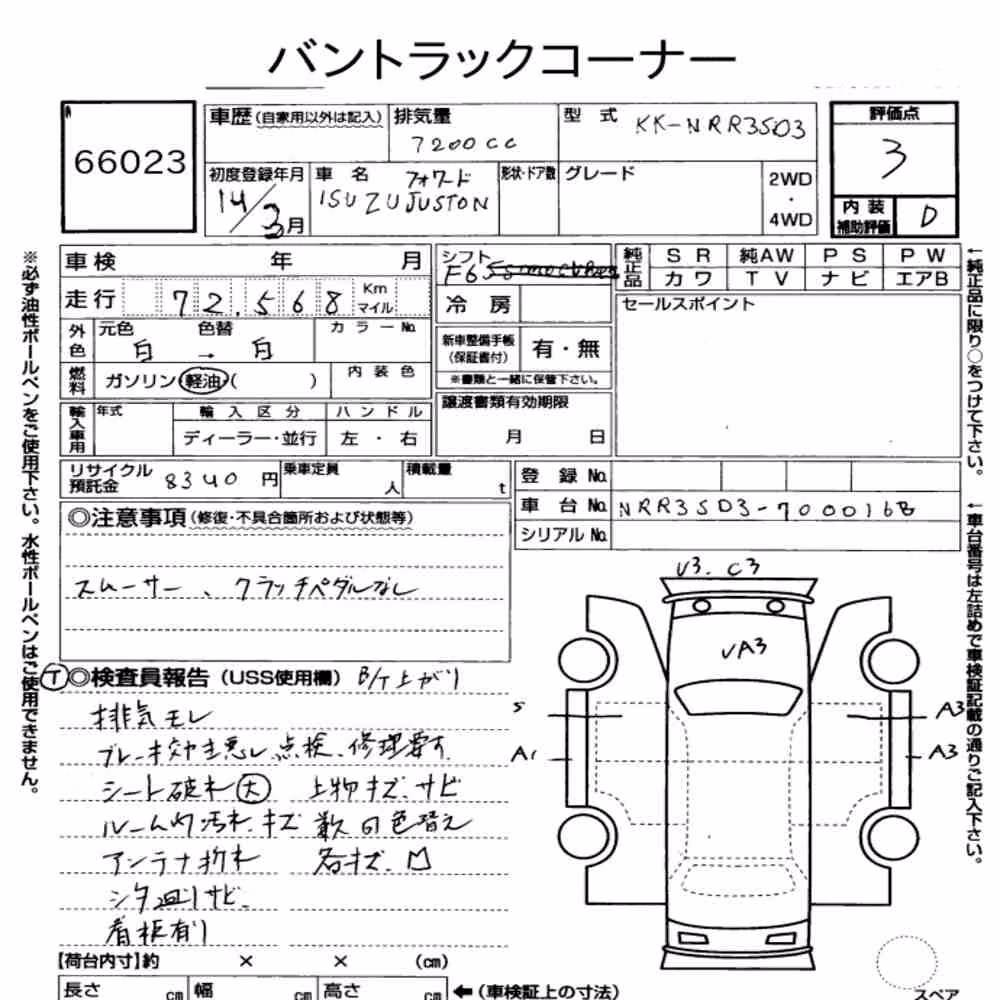 バントラックコーナー
66023
車歴 (自家用以外は記入)
排気量
7200cc
型式 KK-NRR35D3
評価点
3
初度登録年月
14/3月
車名 フォワード
ISUZU JUSTON
形状・ドア数
グレード
2WD
・
4WD
内装
補助評価
D
車検 年 月
シフト
F6
純正品
SR 純AW PS PW
カワ TV ナビ エアB
走行 72.568 Km
マイル
冷房
セールスポイント
外色
元色 色替
白 → 白
カラーNo.
新車整備手帳
(保証書付)
有・無
※書類と一緒に保管下さい。
燃料
ガソリン 軽油 ( )
内装色
譲渡書類有効期限
月 日
輸入車用
年式
輸入区分 ハンドル
ディーラー・並行 左・右
リサイクル
預託金
8340 円
乗車定員
人
積載量
t
登録No.
車台No. NRR35D3-7000168
シリアルNo.
◎注意事項 (修復・不具合箇所および状態等)
スムーサー、クラッチペダルなし
※必ず油性ボールペンをご使用下さい。水性ボールペンはご使用できません。
←純正品に限り○をつけて下さい。
←車台番号は左詰めで車検証記載の通りご記入下さい。
T ◎検査員報告 (USS使用欄) B/T上がり
排気モレ
ブレーキ効き悪し点検、修理要す
シート破れ 大 上物キズ、サビ
ルーム内汚れ、キズ 数ヶ所色替え
アンテナ折れ 各キズ、凹
シタ廻りサビ
看板有り
U3. C3
UA3
S
A1
A3
A3
【荷台内寸】約 × × (cm)
長さ cm 幅 cm 高さ cm ←(車検証上の寸法)
スペア